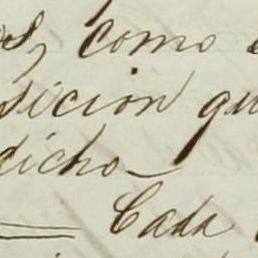 s, como
sicion qu
dicho
Cada